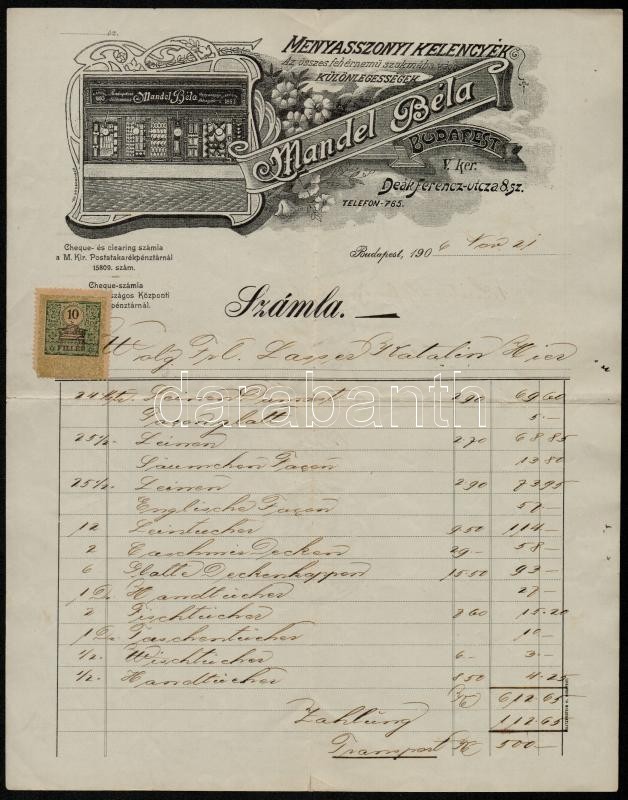 sz.
MENYASSZONYI KELENGYÉK
Az összes fehérnemű szakmába vágó
KÜLÖNLEGESSÉGEK
Mandel Béla
BUDAPEST
V. ker.
Deák Ferencz-utcza 8.sz.
TELEFON-765.
Mandel Béla
Cheque- és clearing számla
a M. Kir. Postatakarékpénztárnál
15809. szám.
Cheque-számla
Országos Központi
pénztárnál.
Budapest, 1906 Nov 21
10
FILLÉR
Számla.
Wolg Frl. Lasser Katalin Hier
24 Leinen 2.90 69.60
Façonplatt 5.-
25½ Leinen 2.70 68.85
Säumchen Façon 13.80
25½ Leinen 2.90 73.95
Englische Façon 50.-
12 Leintücher 9.50 114.-
2 Caschmir Decken 29.- 58.-
6 Glatte Deckenkappen 15.50 93.-
1 Dz Handtücher 27.-
2 Tischtücher 7.60 15.20
1 Dz Taschentücher 10.-
½ Wischtücher 6.- 3.-
½ Handtücher 8.50 4.25
K 612.65
Zahlung 112.65
Transport K 500.-
darabanth